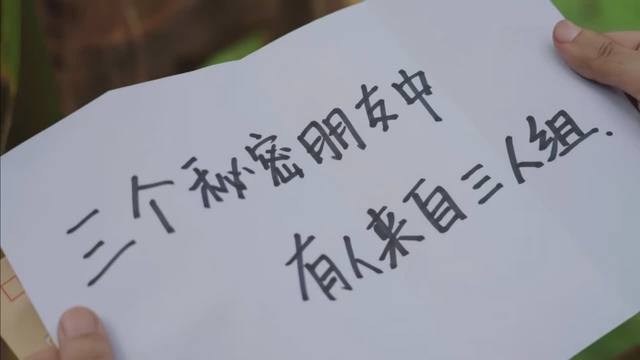 三个秘密朋友中
有人来自三人组.